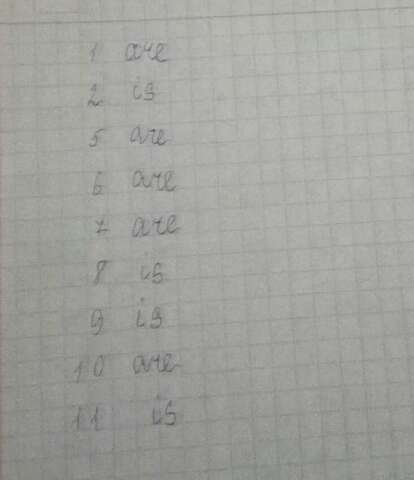 1 are
2 is
5 are
6 are
7 are
8 is
9 is
10 are
11 is